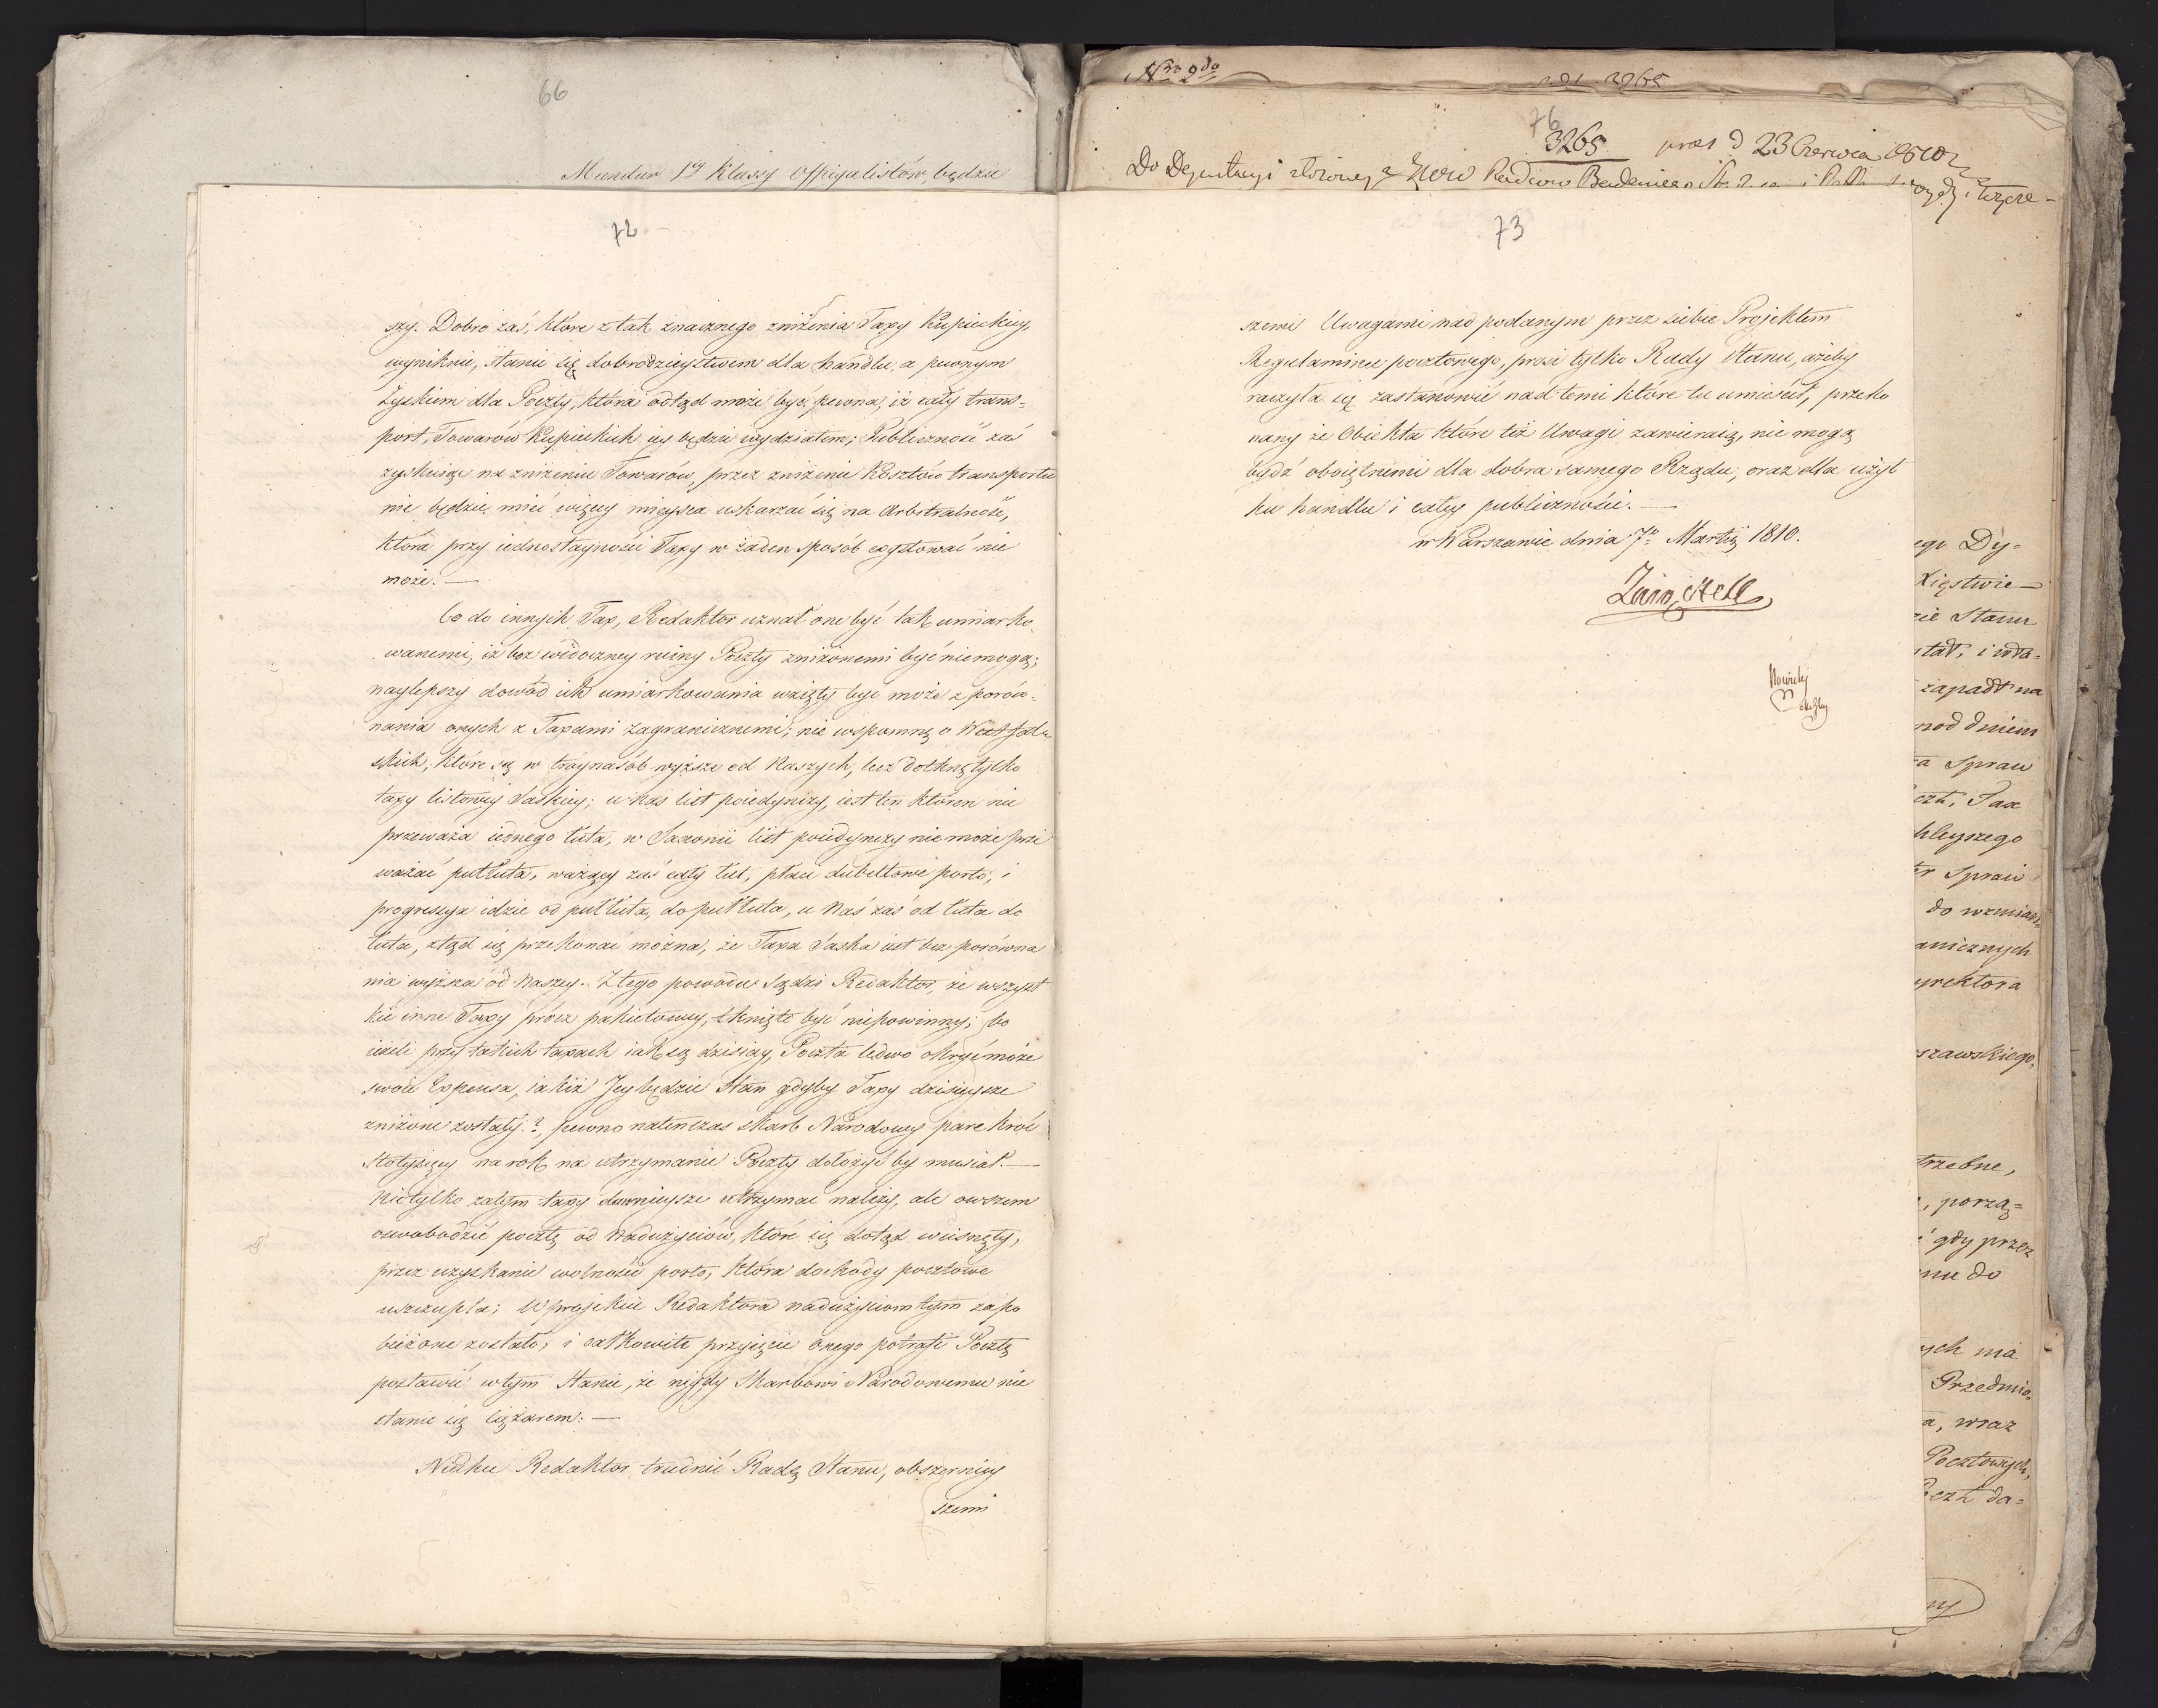 66
Mundur 1ey Klassy Offycyalistów, będzie
72
szy. Dobro zaś, które z tak znacznego zniżenia Taxy Kupieckiey,
wyniknie, stanie się dobrodzieystwem dla handlu, a pewnym
Zyskiem dla Poczty, która odtąd może być pewna, iż cały trans=
port, Towarów Kupieckich iey będzie wydziałem; Publiczność zaś
zyskuiąc na zniżeniu Towarów, przez zniżenie Kosztów transportu
nie będzie mieć więcey mieysca uskarzać się na Arbitralność,
która przy iednostayności Taxy w żaden sposób exystować nie
może. —
Co do innych Tax, Redaktor uznał one być tak umiarko,
wanemi, iż bez widoczney ruiny Poczty zniżonemi być niemogą;
naylepszy dowód ich umiarkowania wzięty być może z porów=
nania onych z Taxami zagranicznemi; nie wspomnę o Westfal=
skich, które są w troynasób wyższe od Naszych, lecz dotknę tylko
taxy listowey Saskiey; u nas list poiedynczy, iest ten któren nie
przeważa iednego łuta, w Saxonii list poiedynczy nie może prze
ważać pułłuta, ważący zaś cały łut, płaci dubeltowe porto, i
progressya idzie od pułłuta, do pułłuta, u Naś zaś od łuta do
łuta, ztąd się przekonać można, że Taxa Saska iest bez porówna
nia wyższa od Naszey. Z tego powodu sądzi Redaktor, że wszyst
kie inne Taxy prócz pakietowey, tknięte być niepowinny; bo
ieżeli przy takich taxach iak są dzisiay, Poczta ledwo okryć może
swoie Expensa, iakiż Jey będzie Stan gdyby Taxy dzisieysze
zniżone zostały.?, pewno natenczas skarb Narodowy pare kroć
stotysięcy na rok na utrzymanie Poczty dołożyć by musiał. —
Nietylko zatym taxy dawnieysze utrzymać należy, ale owszem
oswobodzić pocztę od Nadużyciów, które się dotąd wcisnęły,
przez uzyskanie wolności porto, która dochody pocztowe
uszczupla; W projekcie Redaktora nadużyciom tym zapo
bieżone zostało, i całkowite przyięcie Onego potrafi Pocztę
postawić w tym Stanie, że nigdy Skarbowi Narodowemu nie
stanie się ciężarem. —
Niechce Redaktor trudnić Radę Stanu, obszerniey
szemi
Nro 9do
76
3265 pras d 23 Czerwca 1810
73
szemi Uwagami nad podanym przez siebie Projektem
Regulaminu pocztowego, prosi tylko Rady Stanu, ażeby
raczyła się zastanowić nad temi które tu umieścił, przeko
nany że Obiekta które też Uwagi zawieraią, nie mogą
bydź oboiętnemi dla dobra samego Rządu, oraz dla użyt
ku handlu i całey publiczności. —
w Warszawie dnia 7o Martij 1810.
Zaiączek
ego Dy=
Xięstwie —
zie Stanu
stał, i wła=
zapadł na
pod dniem
a Spraw
czt, Tax
hleyszego
r Spraw
do wzmian=
anicznych
yrektora
szawskiego,
trzebne,
, porzą=
i gdy przez
mu do
ych ma
Przedmio=
a, wraz
Pocztowych,
Poczt da=